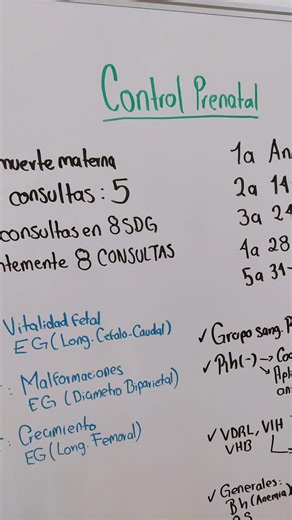 Control Prenatal
muerte materna
consultas: 5
consultas en 8 SDG
8 CONSULTAS
1a
2a 14
3a 24
4a 28
5a 31-
Vitalidad fetal
EG (Long. Cefalo-Caudal)
: Malformaciones
EG (Diametro Biparietal)
: Crecimiento
EG (Long. Femoral)
✓ Grupo sang.
✓ Rh(-) →
→
✓ VDRL, VIH
VHB
✓ Generales:
Bh (Anemia)